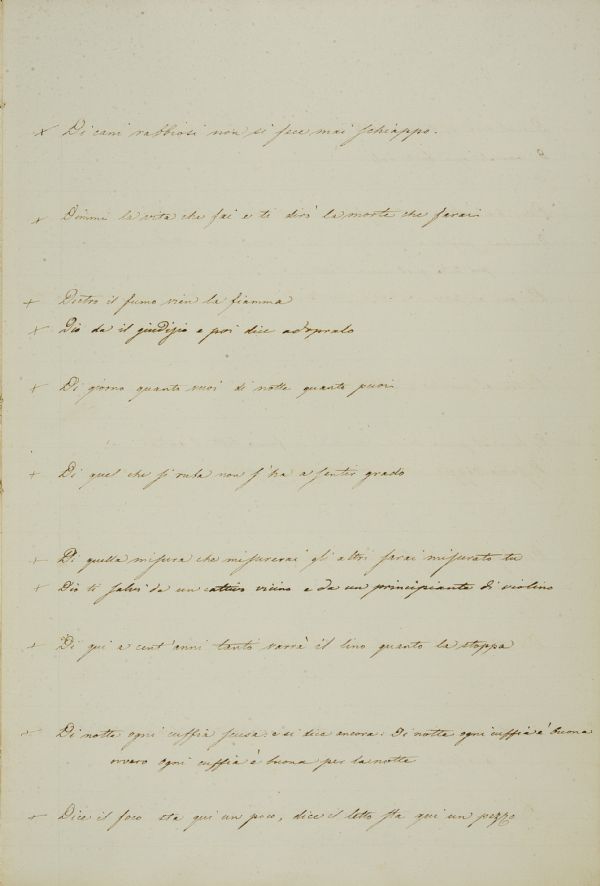 × Di cani rabbiosi non si fece mai schiappo.
+ Dimmi la vita che fai e ti dirò la morte che farai
+ Dietro il fumo vien la fiamma
+ Dio da il giudizio e poi dice adopralo
+ Di giorno quanto vuoi di notte quanto puoi
+ Di quel che si ruba non s'ha a sentir grado
+ Di quella misura che misurerai gli altri sarai misurato tu
+ Dio ti salvi da un cattivo vicino e da un principiante di violino
+ Di qui a cent'anni tanto varrà il lino quanto la stoppa
+ Di notte ogni cuffia scusa: e si dice ancora: Di notte ogni cuffia è buona
ovvero ogni cuffia è buona per la notte
+ Dice il foco sta qui un poco, dice il letto sta qui un pezzo